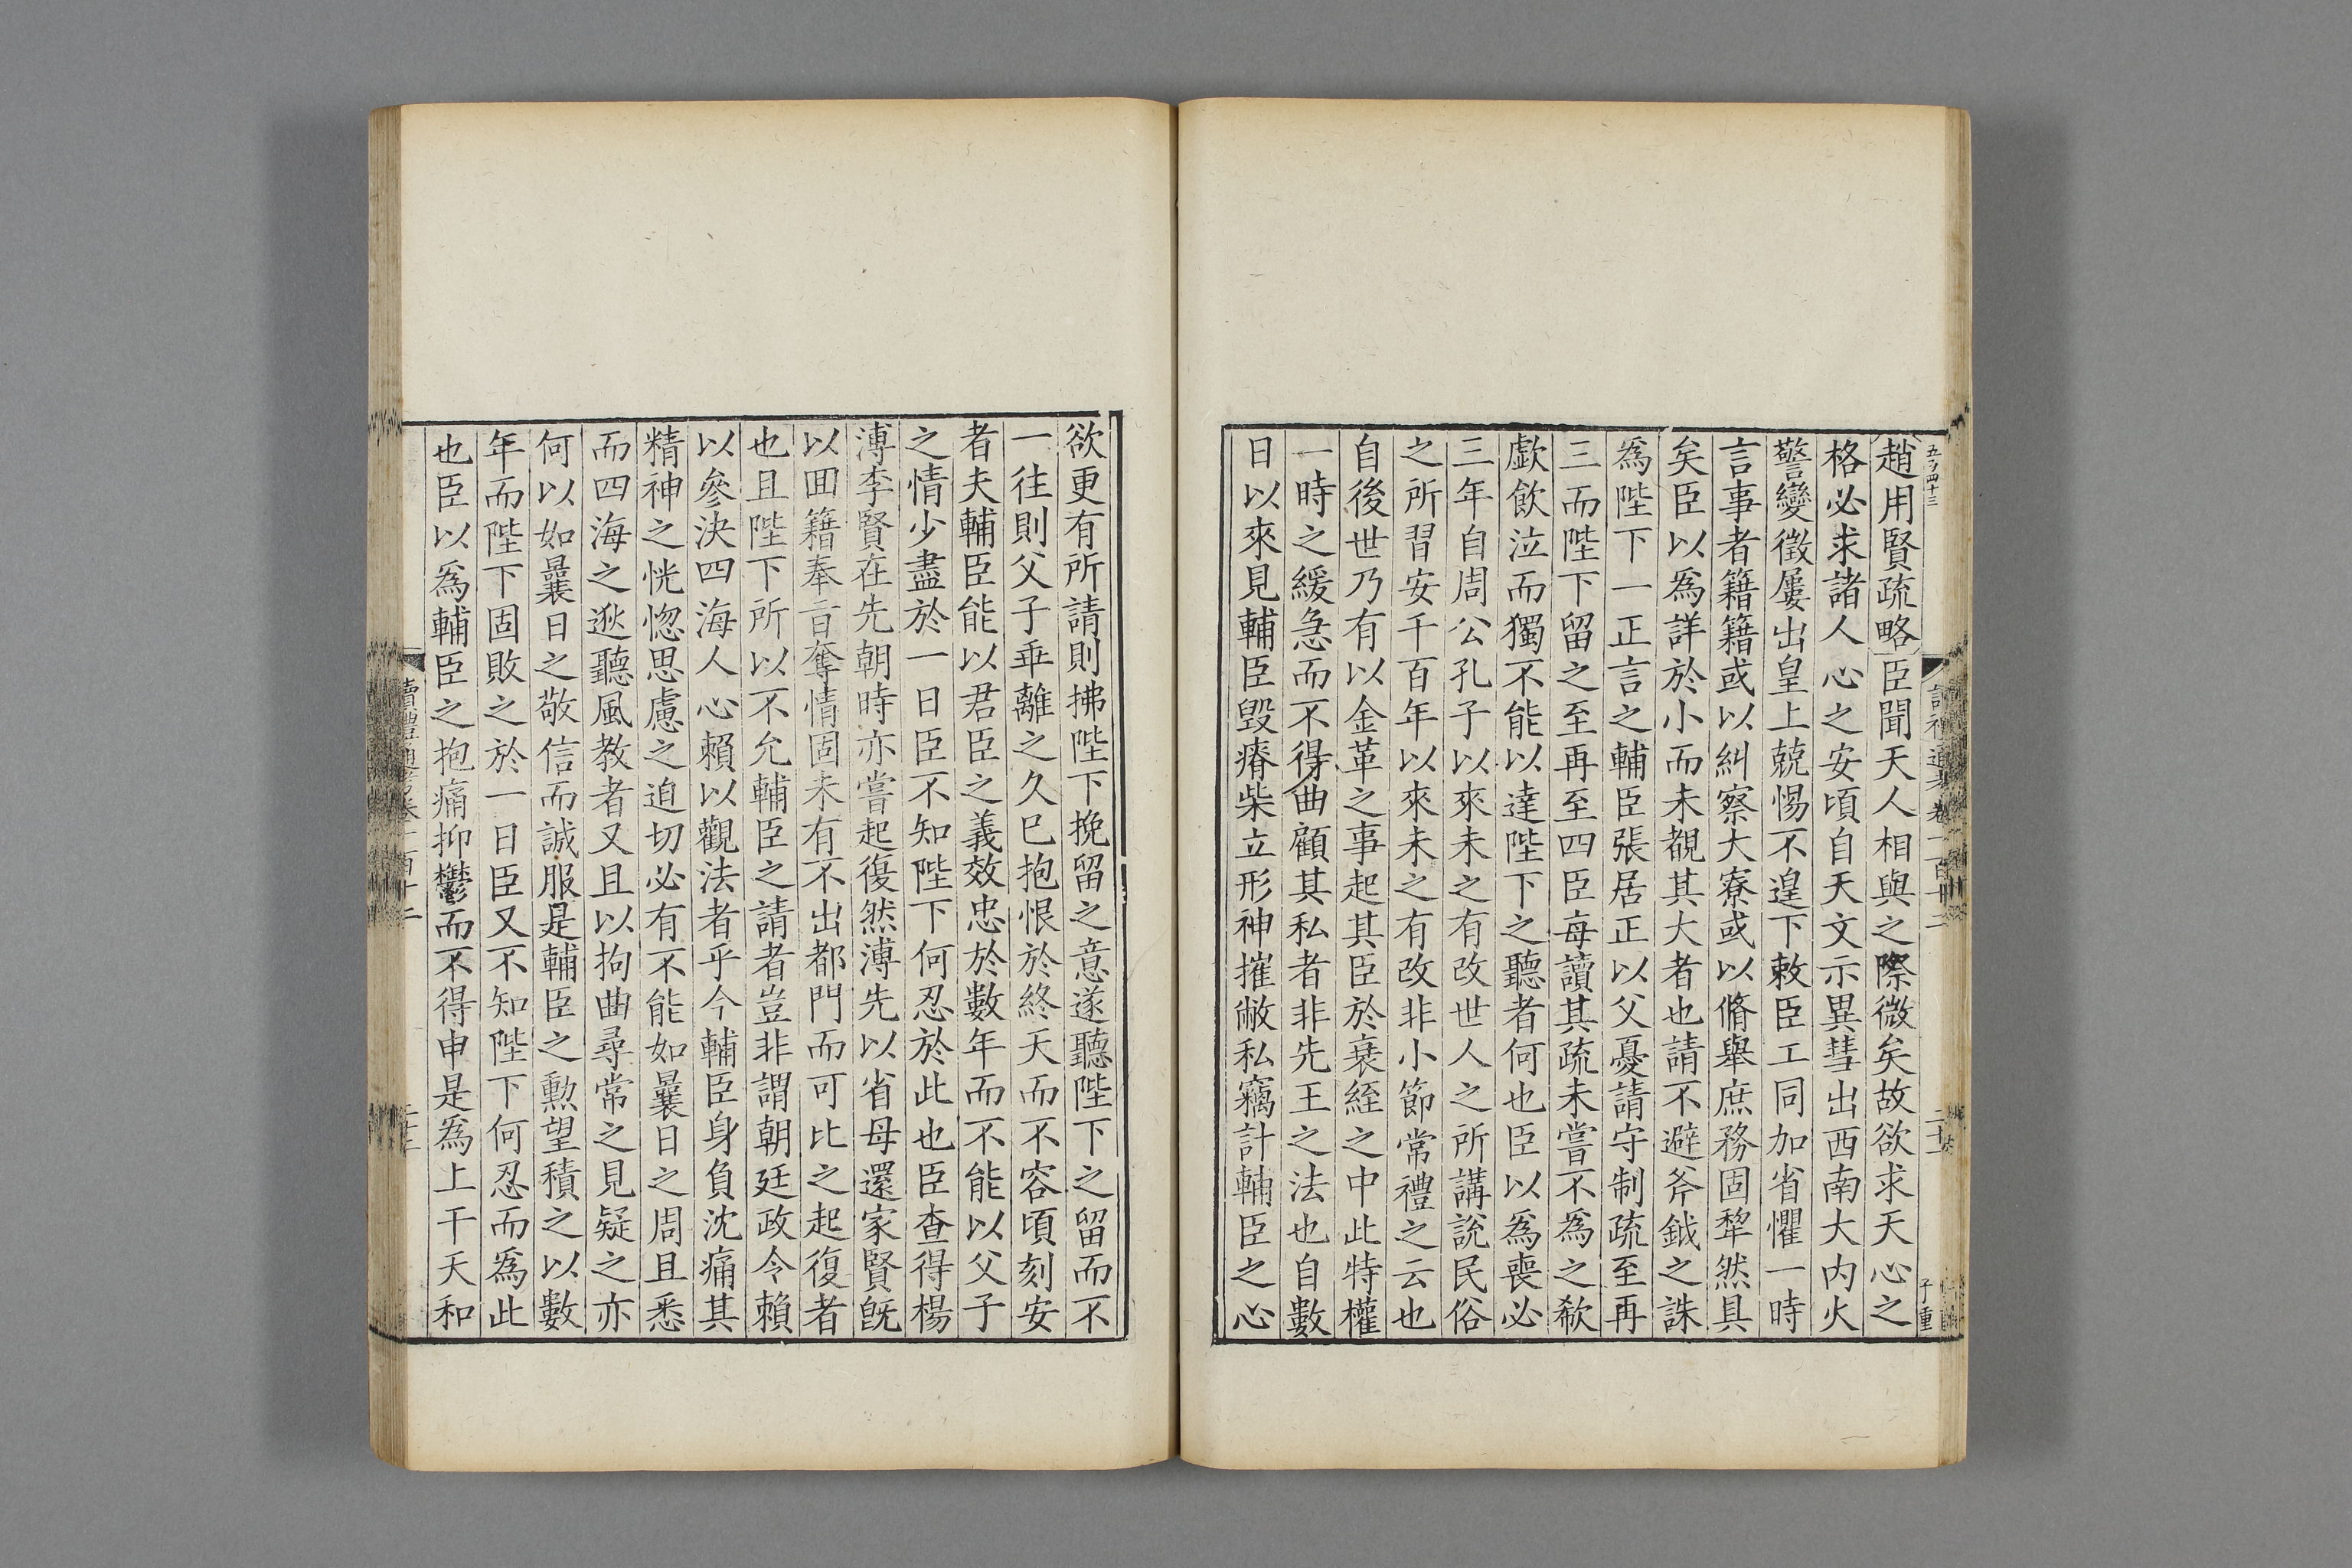 趙用賢疏略臣聞天人相與之際微矣故欲求天心之
格必求諸人心之安頃自天文示異彗出西南大内火
警變徵屢出皇上兢惕不遑下敕臣工同加省懼一時
言事者籍籍或以糾察大寮或以脩舉庶務固犂然具
矣臣以爲詳於小而未覩其大者也請不避斧鉞之誅
爲陛下一正言之輔臣張居正以父憂請守制疏至再
三而陛下留之至再至四臣每讀其疏未嘗不爲之欷
歔飲泣而獨不能以達陛下之聽者何也臣以爲喪必
三年自周公孔子以來未之有改世人之所講說民俗
之所習安千百年以來未之有改非小節常禮之云也
自後世乃有以金革之事起其臣於衰絰之中此特權
一時之緩急而不得曲顧其私者非先王之法也自數
日以來見輔臣毀瘠柴立形神摧敝私竊計輔臣之心
欲更有所請則拂陛下挽留之意遂聽陛下之留而不
一往則父子乖離之久巳抱恨於終天而不容頃刻安
者夫輔臣能以君臣之義效忠於數年而不能以父子
之情少盡於一日臣不知陛下何忍於此也臣查得楊
溥李賢在先朝時亦嘗起復然溥先以省母還家賢旣
以囬籍奉旨奪情固未有不出都門而可比之起復者
也且陛下所以不允輔臣之請者豈非謂朝廷政令賴
以參決四海人心賴以觀法者乎今輔臣身負沈痛其
精神之恍惚思慮之迫切必有不能如曩日之周且悉
而四海之逖聽風教者又且以拘曲尋常之見疑之亦
何以如曩日之敬信而誠服是輔臣之勲望積之以數
年而陛下固敗之於一日臣又不知陛下何忍而爲此
也臣以爲輔臣之抱痛抑鬱而不得申是爲上干天和